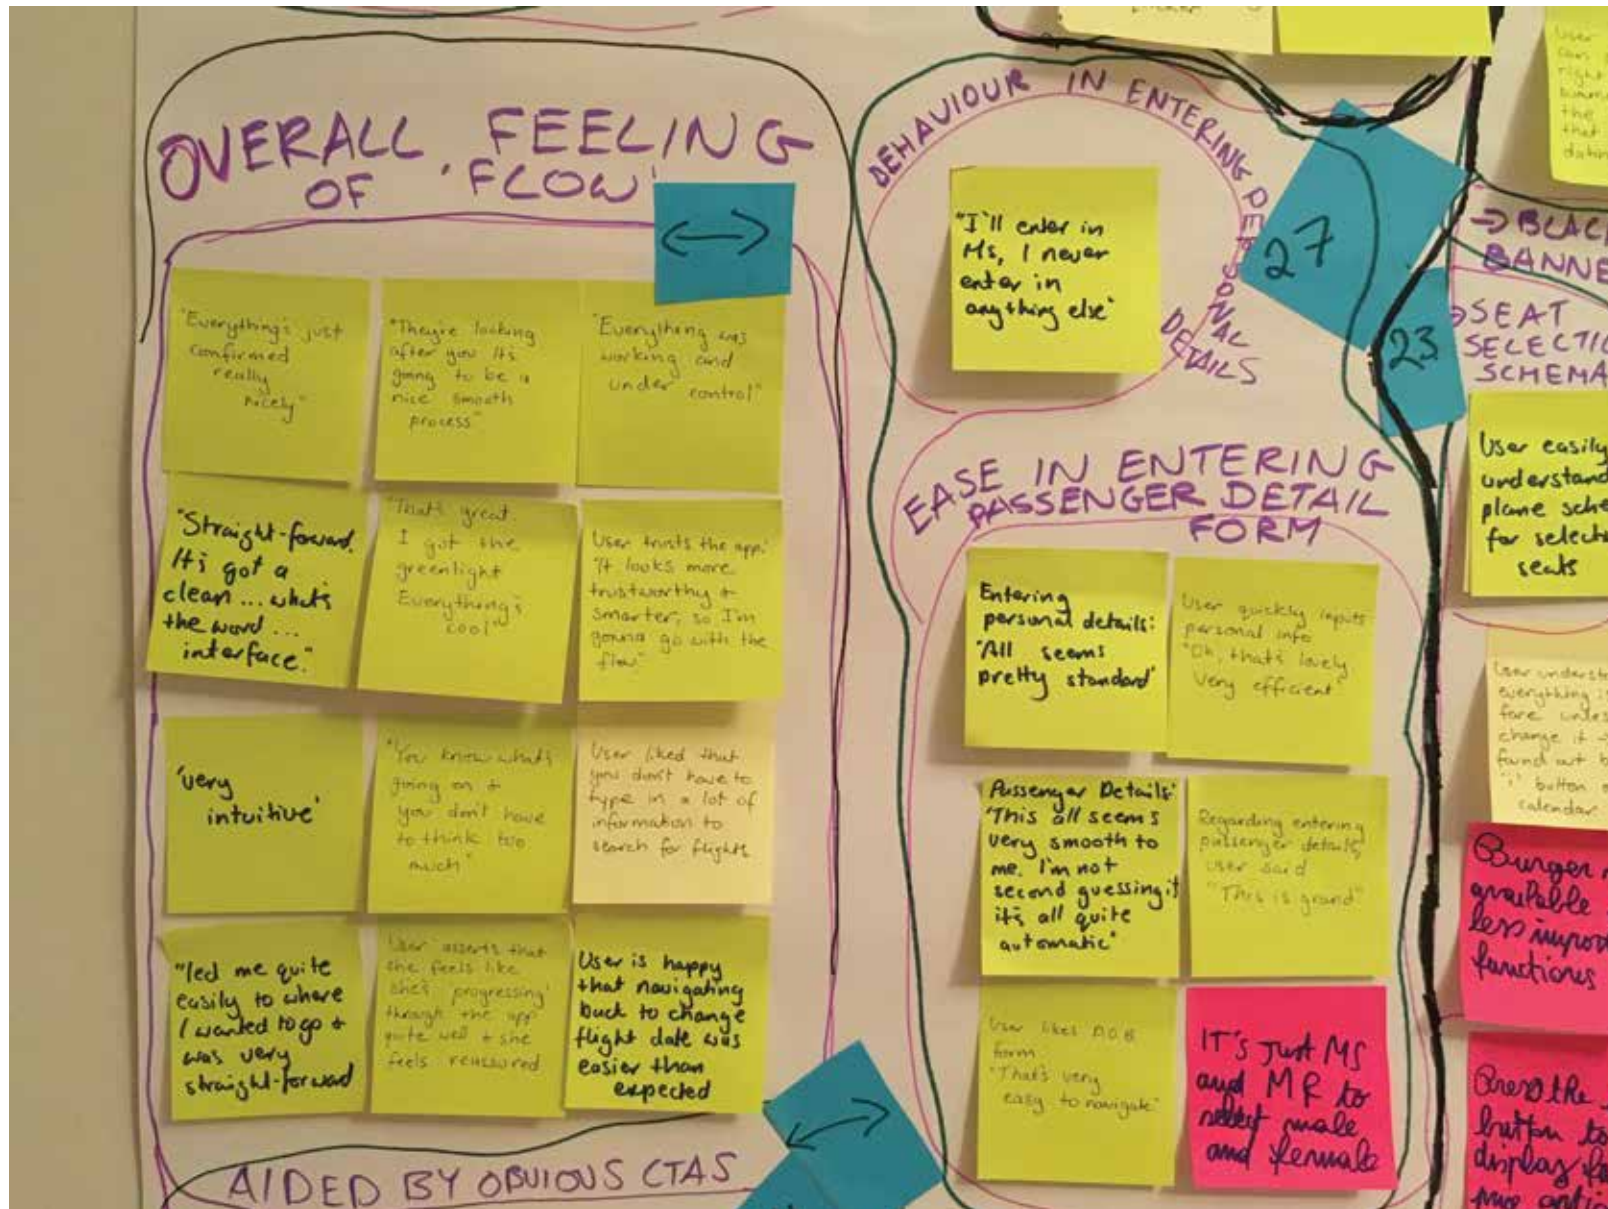 OVERALL FEELING
OF 'FLOW'
"Everything's just
confirmed
really
nicely"
"They're looking
after you it's
going to be a
nice smooth
process"
"Everything was
working and
under control"
"Straight-forward.
It's got a
clean ... what's
the word ...
interface."
"That's great.
I got the
greenlight
Everything's
cool"
User trusts the app.
"It looks more
trustworthy +
smarter, so I'm
gonna go with the
flow"
'very
intuitive'
"You know what's
going on +
you don't have
to think too
much"
User liked that
you don't have to
type in a lot of
information to
search for flights
"led me quite
easily to where
I wanted to go +
was very
straight-forward
User asserts that
she feels like
she's 'progressing'
through the app
quite well + she
feels reassured
User is happy
that navigating
back to change
flight date was
easier than
expected
AIDED BY OBVIOUS CTAS
BEHAVIOUR IN ENTERING PERSONAL
DETAILS
"I'll enter in
Ms, I never
enter in
anything else'
27
23
EASE IN ENTERING
PASSENGER DETAIL
FORM
Entering
personal details:
'All seems
pretty standard'
User quickly inputs
personal info
"Oh, that's lovely
Very efficient"
Passenger Details:
'This all seems
very smooth to
me. I'm not
second guessing it
it's all quite
automatic'
Regarding entering
passenger details,
user said
"This is grand"
User likes D.O.B
form
"That's very
easy to navigate"
IT'S JUST MS
and MR to
select male
and female
→ BLACK
BANNE
→ SEAT
SELECTIO
SCHEMA
User easily
understand
plane sche
for selecti
seats
User understa
everything is
fare unles
change it
found out b
'i' button o
calendar
Burger
available
less import
functions
Press the
button to
display